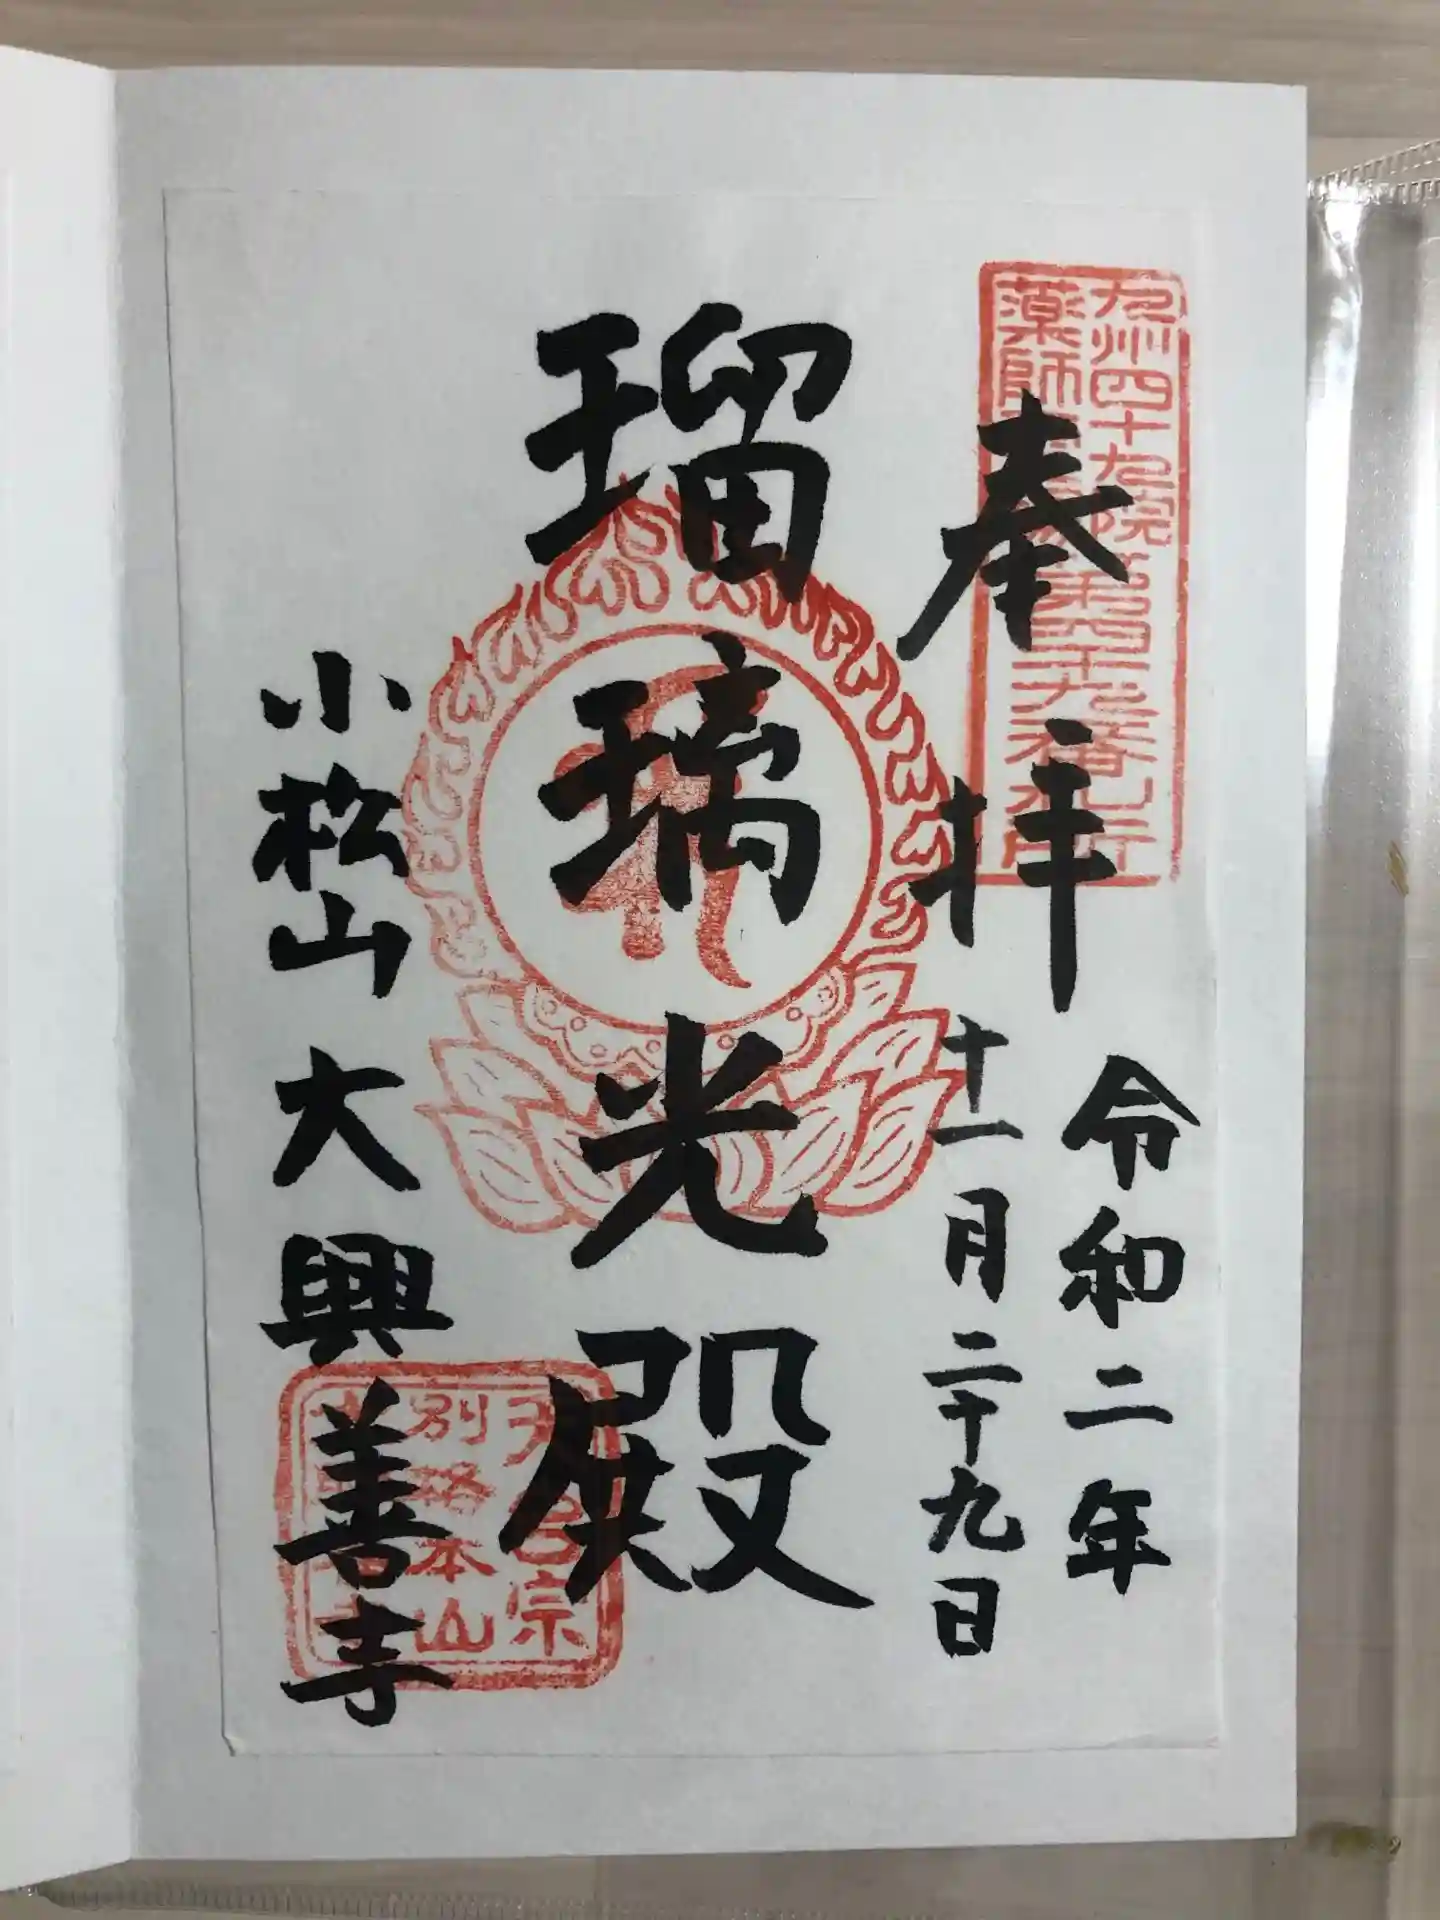 九州四十九院
薬師
第四十九番
奉拝
令和二年
十一月二十九日
瑠璃光殿
小松山 大興善寺
別格本山